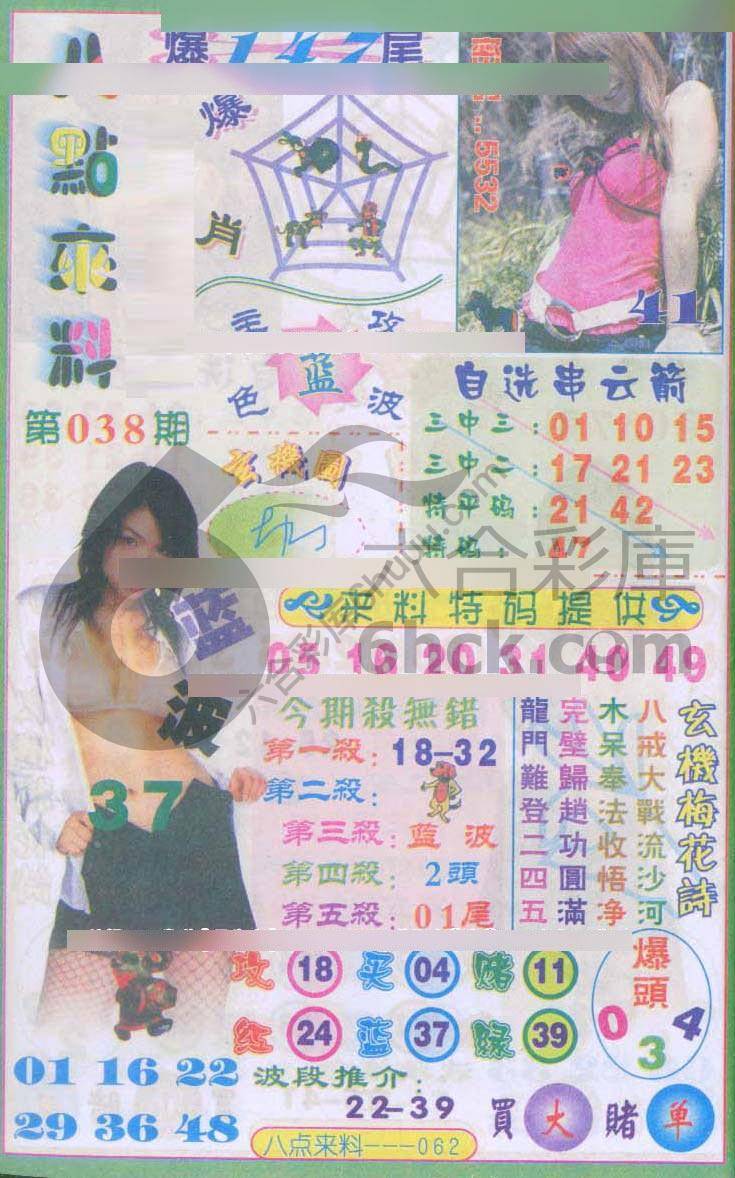 八點來料
爆147尾
爆肖
密碼:5532
41
主攻
蓝
色波
第038期
玄機圖
自选串云箭
三中三:01 10 15
三中二:17 21 23
特平码:21 42
特码:47
六合彩庫
6hck.com
来料特码提供
05 16 20 31 40 49
蓝波
37
今期殺無錯
第一殺:18-32
第二殺:
第三殺:蓝波
第四殺:2頭
第五殺:01尾
玄機梅花詩
八戒大戰流沙河
木呆奉法收悟净
完壁歸趙功圓滿
龍門難登二四五
攻 18 买 04 赌 11
红 24 蓝 37 绿 39
爆頭
0 3 4
01 16 22
29 36 48
波段推介:
22-39
買大賭单
八点来料---062